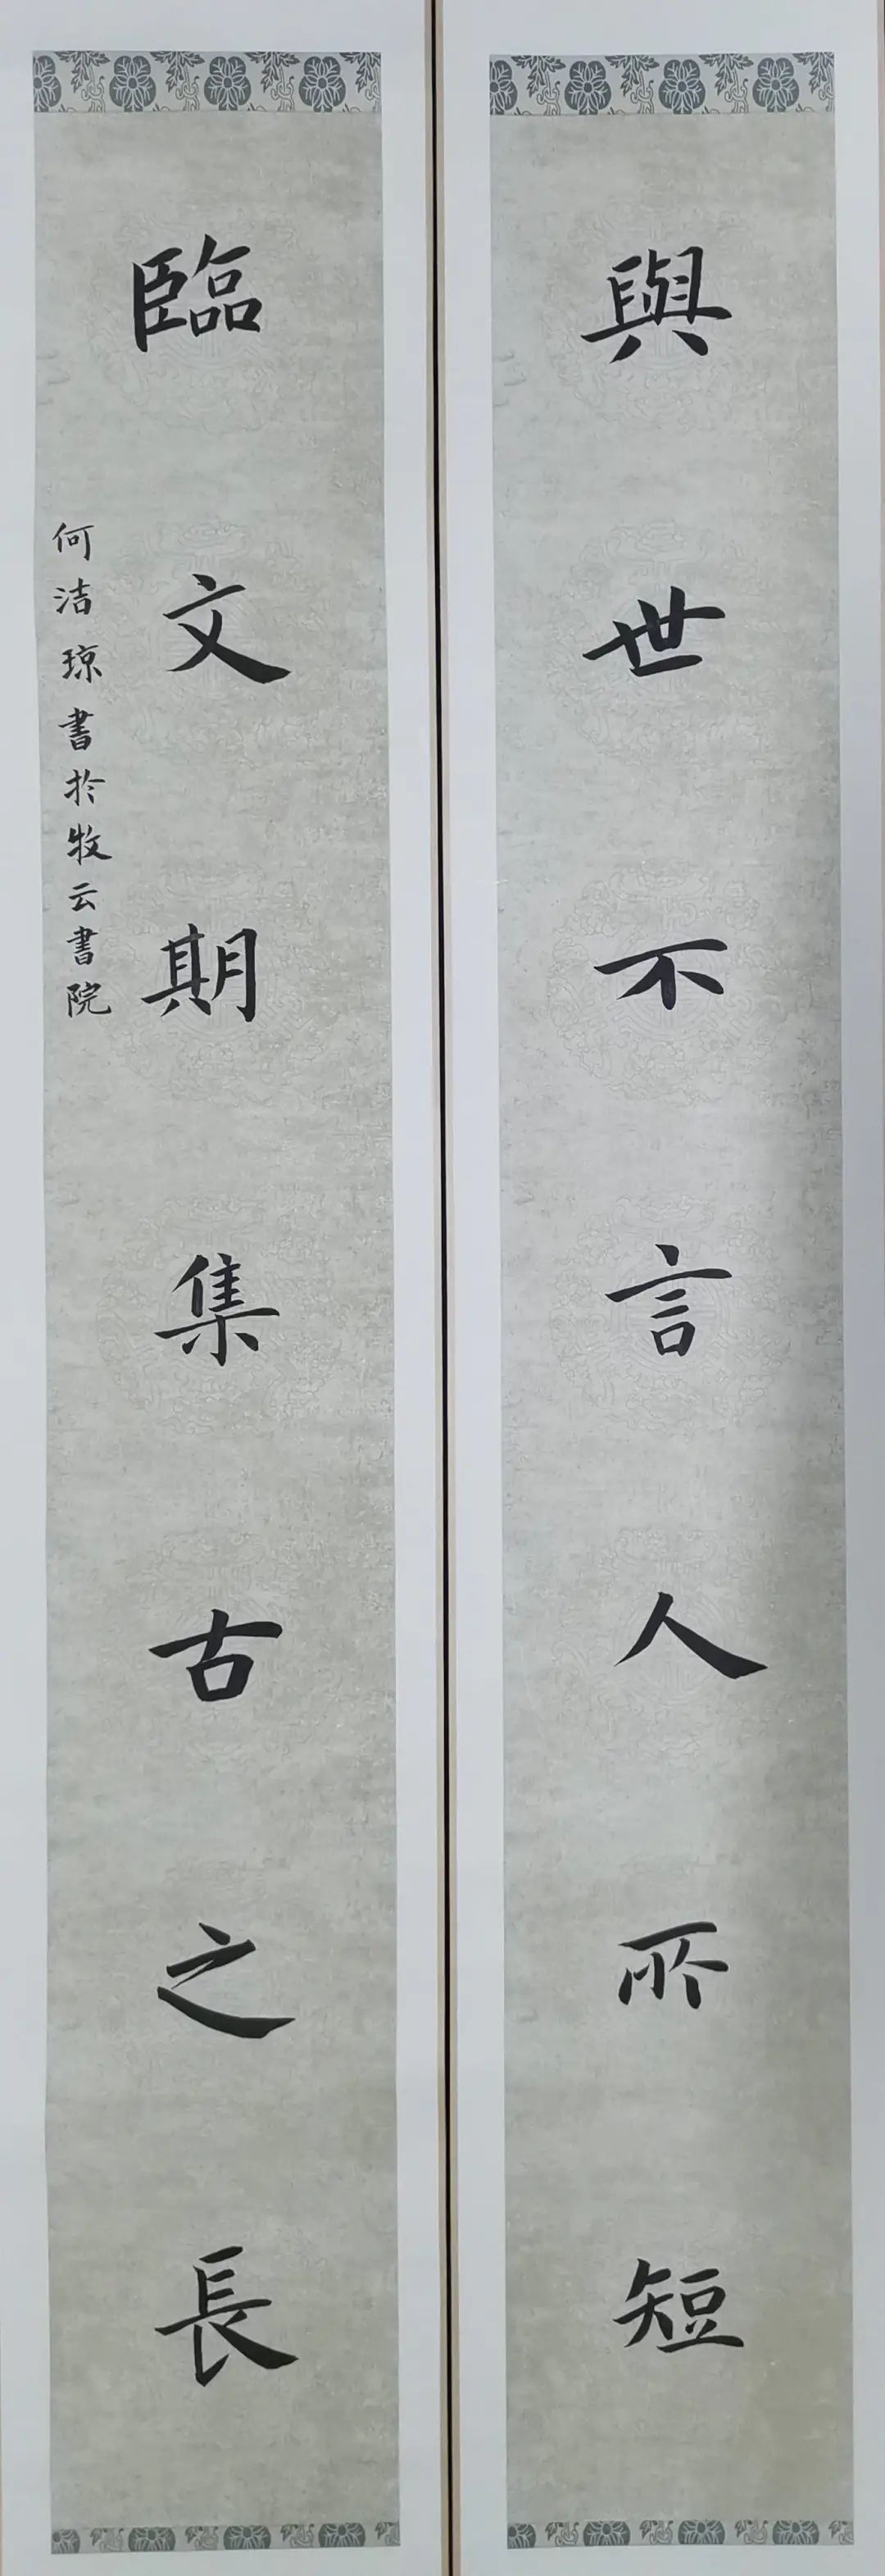 與世不言人所短
臨文期集古之長
何洁琼書於牧云書院